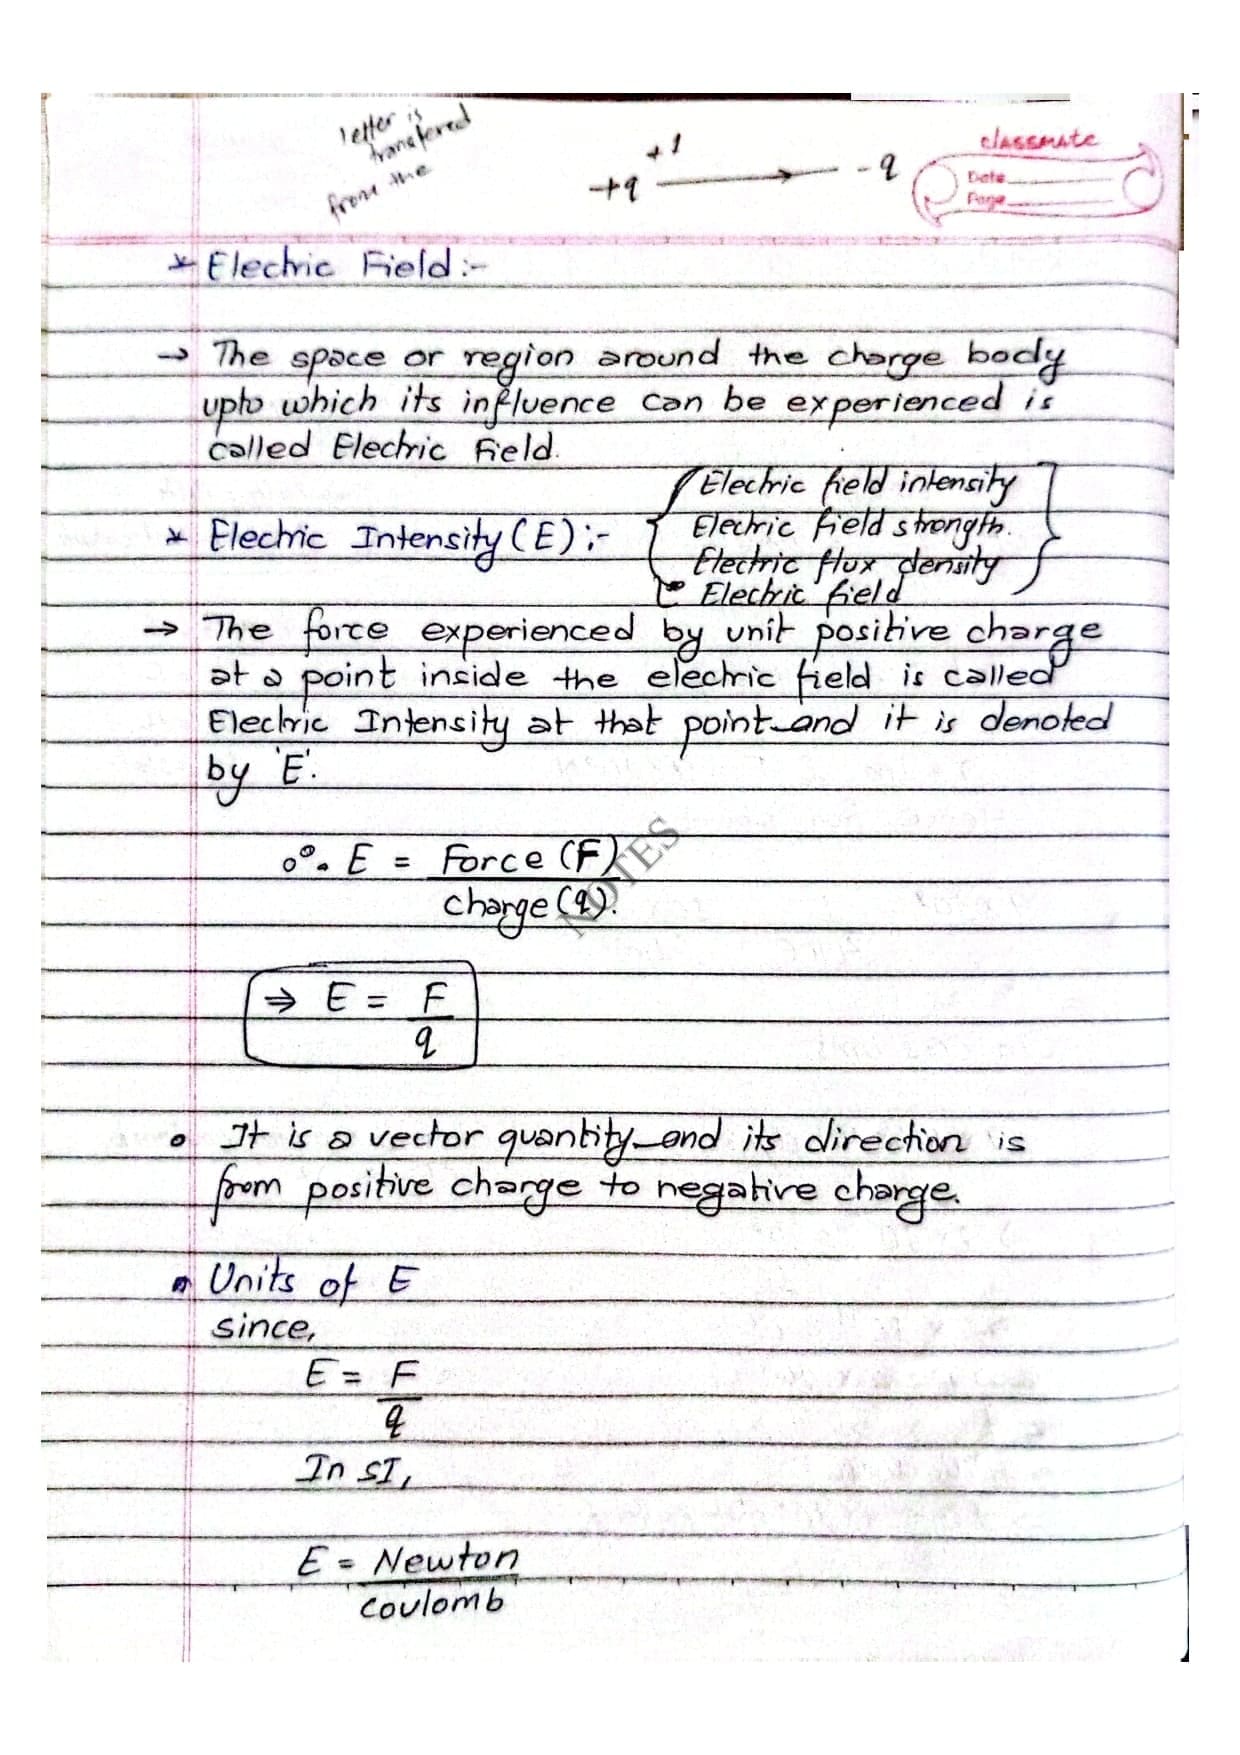 letter is
transfered
from the
+1
+q → -q
classmate
Date
Page
* Electric Field :-
→ The space or region around the charge body
upto which its influence can be experienced is
called Electric Field.
Electric field intensity
* Electric Intensity (E) :- Electric field strength.
Electric flux density
Electric field
→ The force experienced by unit positive charge
at a point inside the electric field is called
Electric Intensity at that point and it is denoted
by 'E'.
∴ E = Force (F)
charge (q).
NOTES
⇒ E = F
q
• It is a vector quantity and its direction is
from positive charge to negative charge.
Units of E
since,
E = F
q
In SI,
E = Newton
coulomb